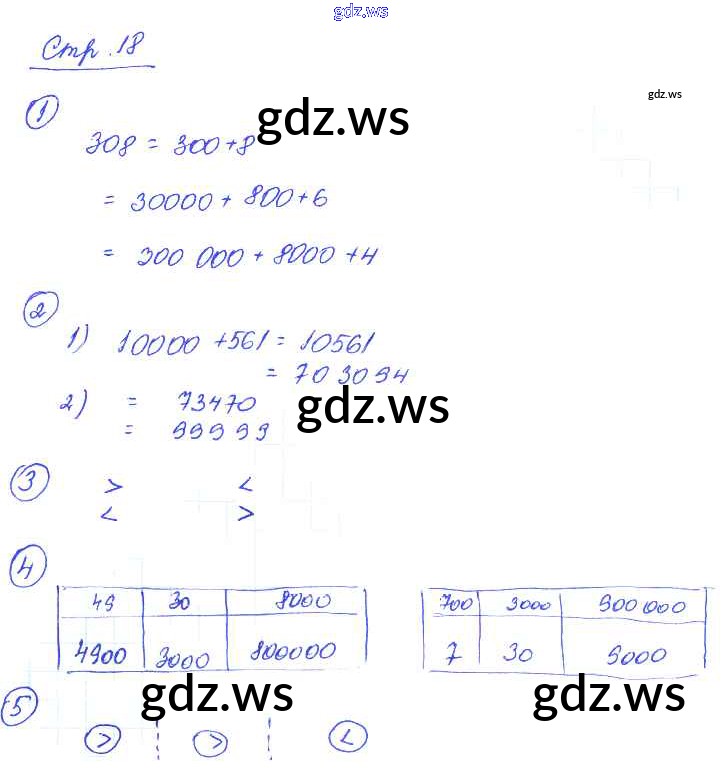 gdz.ws
Стр. 18
gdz.ws
1
gdz.ws
308 = 300+8
= 30000 + 800+6
= 300 000 + 8000 +4
2
1) 10000 +561 = 10561
= 703094
2) = 73470
gdz.ws
= 99999
3
> <
< >
4
49 30 8000 700 3000 900 000
4900 3000 800000 7 30 9000
gdz.ws gdz.ws
5
> > <